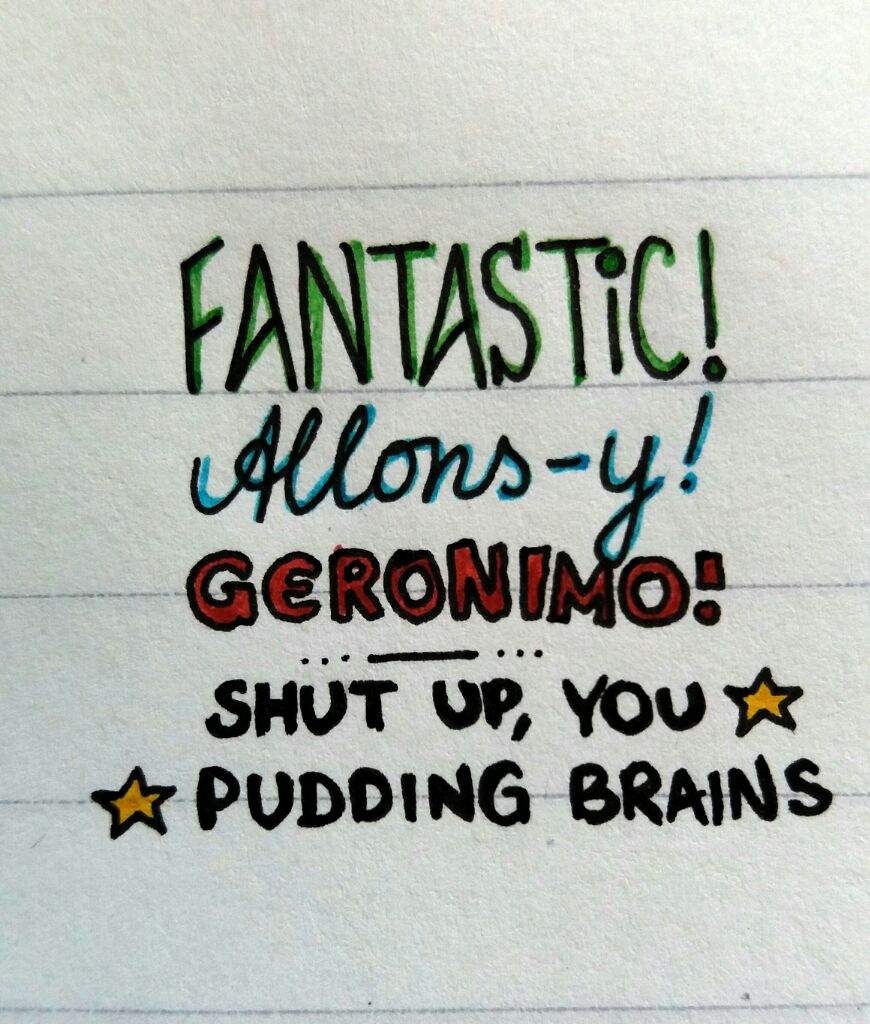 FANTASTiC!
Allons-y!
GERONIMO!
SHUT UP, YOU
PUDDING BRAINS